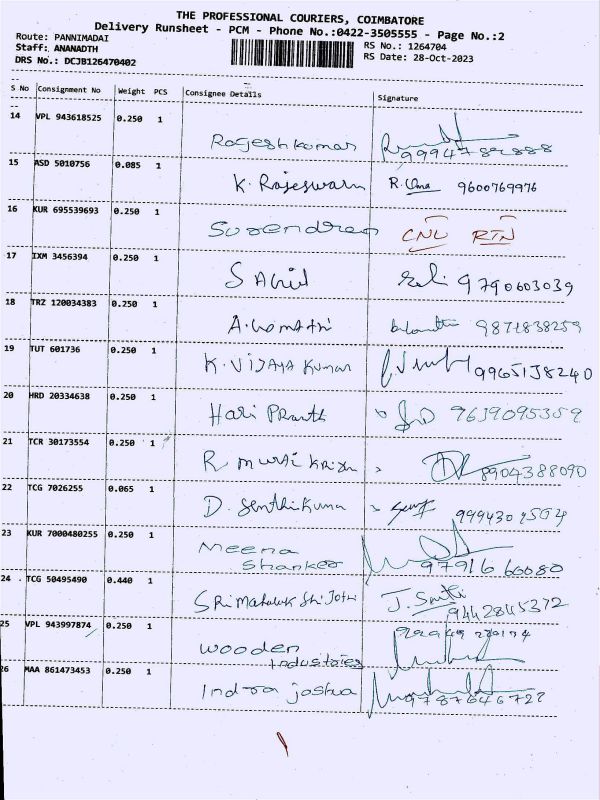 THE PROFESSIONAL COURIERS, COIMBATORE
Delivery Runsheet - PCM - Phone No.:0422-3505555 - Page No.:2
Route: PANNIMADAI
Staff: ANANADTH RS No.: 1264704
DRS No.: DCJB126470402 RS Date: 28-Oct-2023
S No Consignment No Weight PCS Consignee Details Signature
14 VPL 943618525 0.250 1
Rajeshkumar
15 ASD 5010756 0.085 1
K. Rajeswarn R. Uma 9600769976
16 KUR 695539693 0.250 1
Surendran CNL RTN
17 IXM 3456394 0.250 1
SAhil 9790603039
18 TRZ 120034383 0.250 1
A. Gomathi 9871838259
19 TUT 601736 0.250 1
K. VIJAYA Kumar 9965138240
20 HRD 20334638 0.250 1
Hari PRanth 9639095359
21 TCR 30173554 0.250 1
R 8904388090
22 TCG 7026255 0.065 1
D. Senthikuma
23 KUR 7000480255 0.250 1
Meena
Shanker 9791666080
24 TCG 50495490 0.440 1
SRi Mahaluk Shi Jothi J. Smiti 9442845372
25 VPL 943997874 0.250 1
Wooden
Industries
26 MAA 861473453 0.250 1
Indra joshua 9787646722